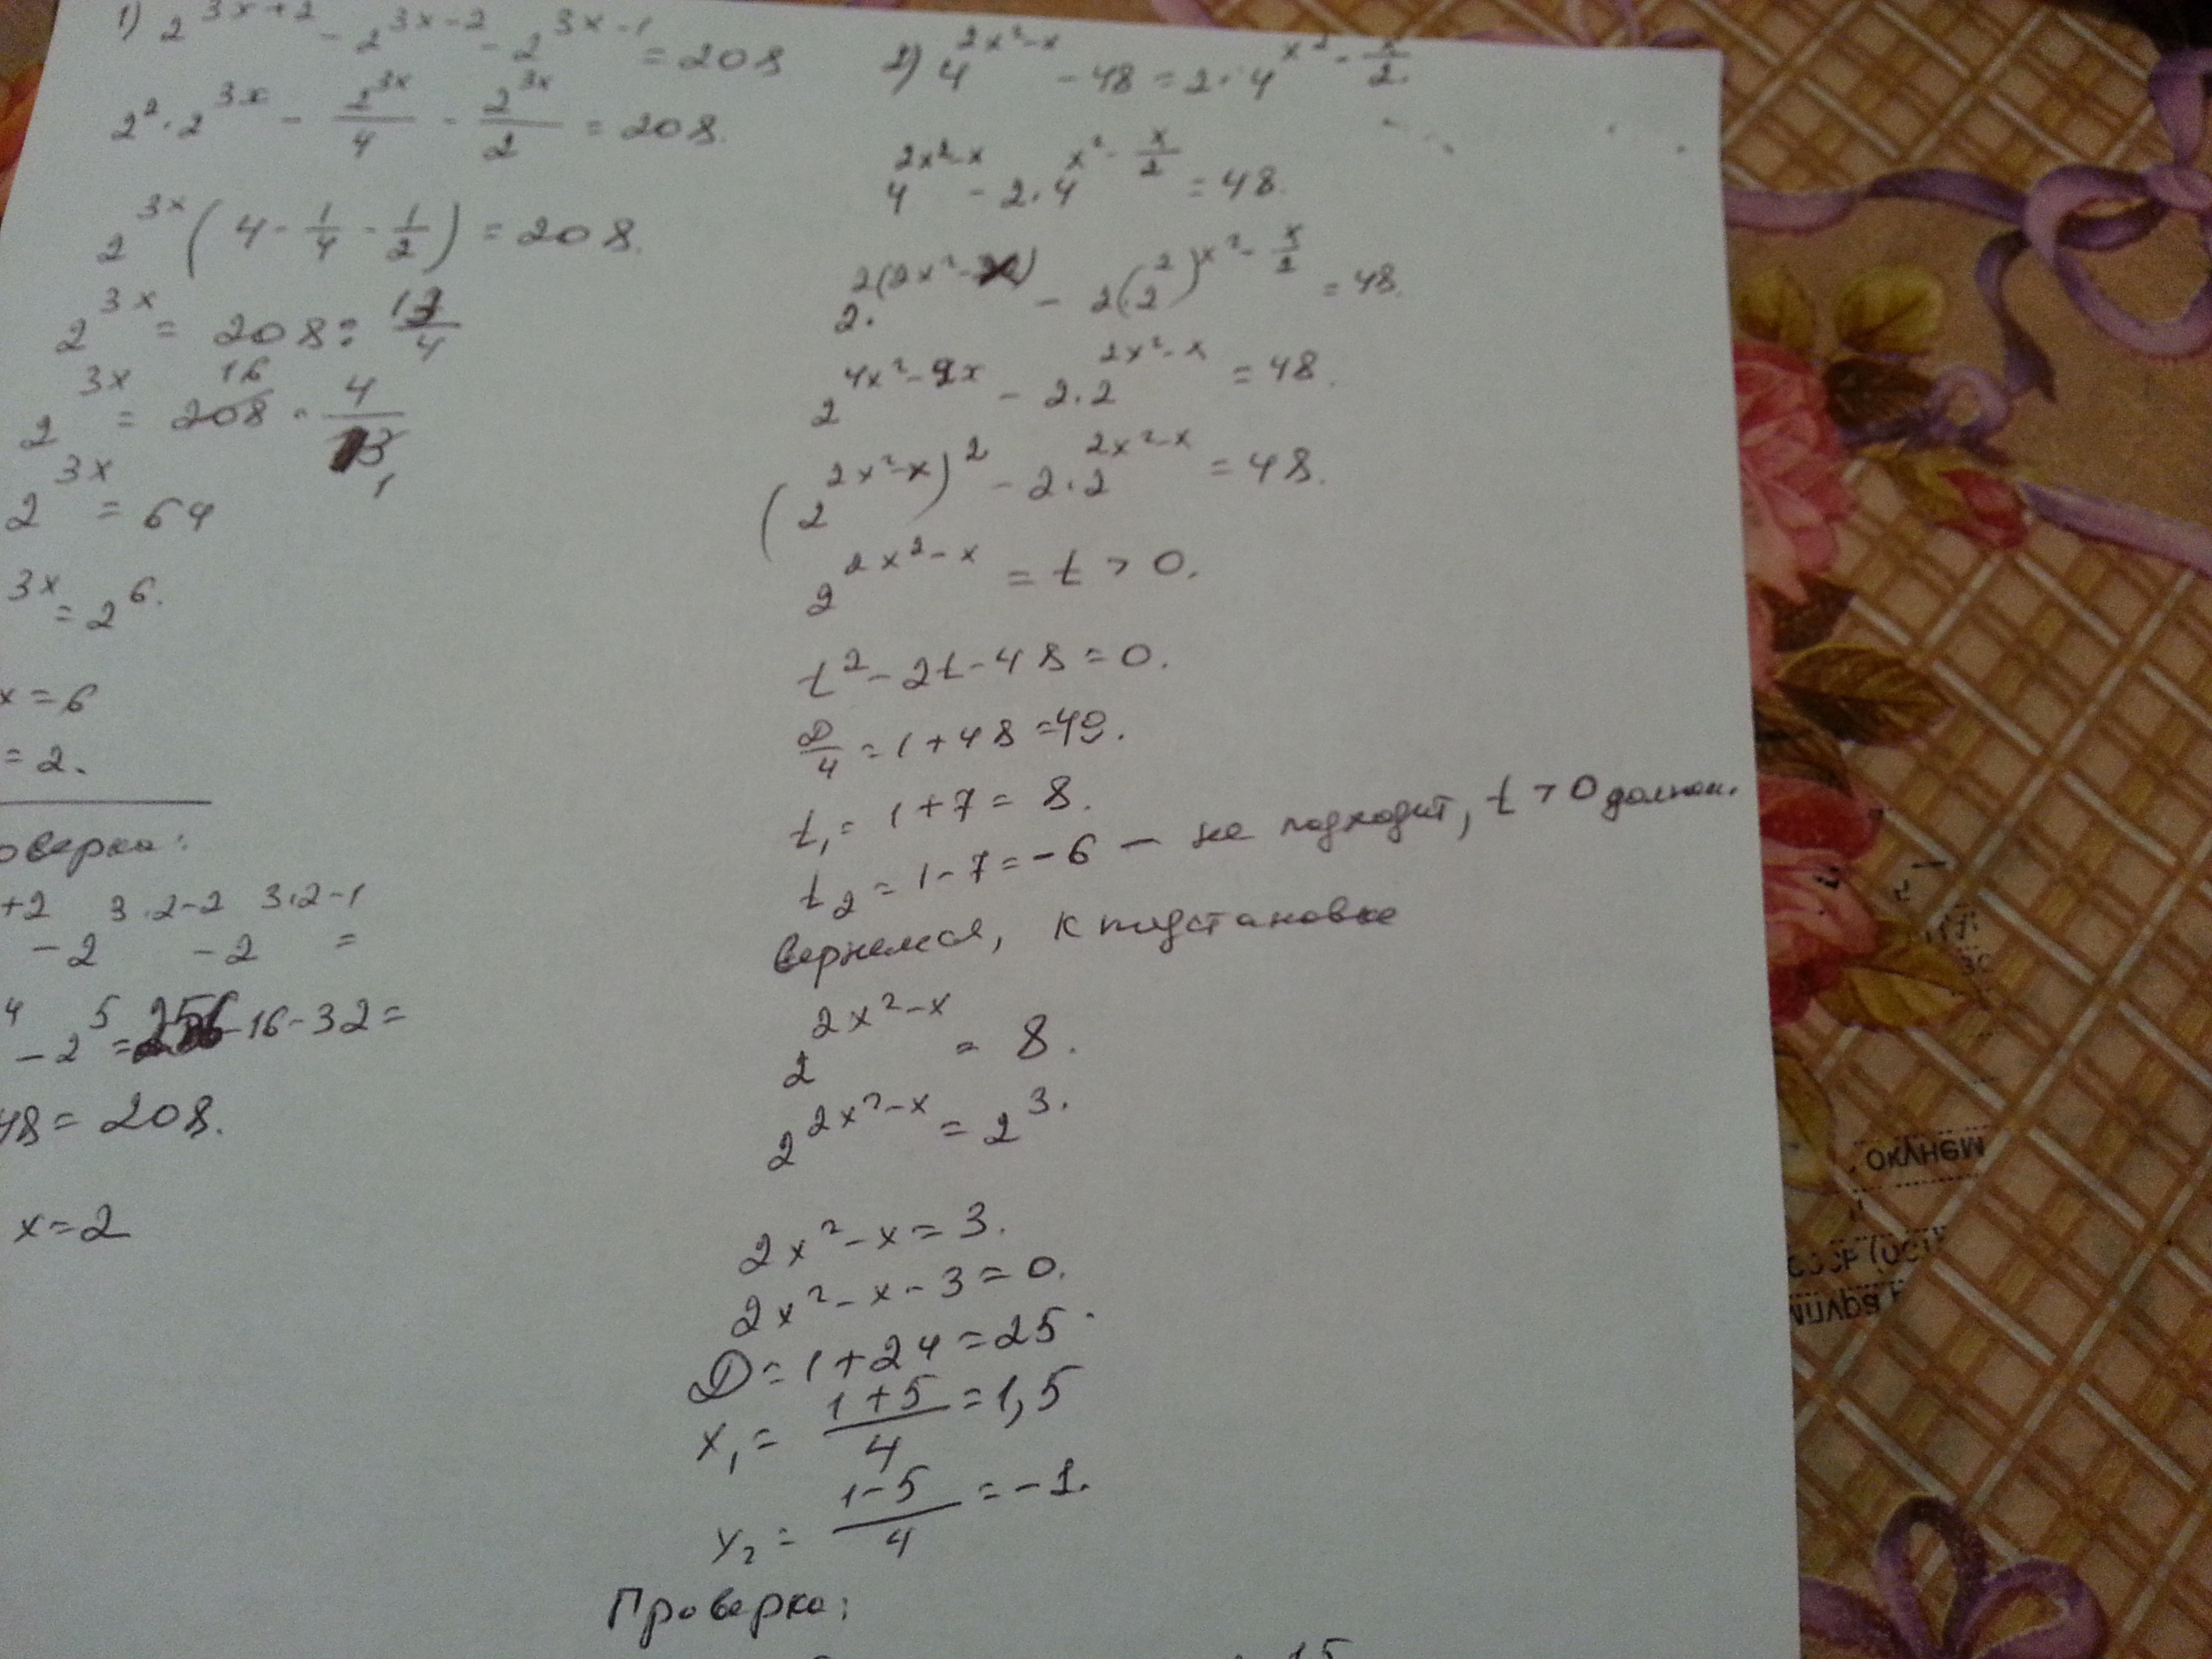 1) 2^(3x+2) - 2^(3x-2) - 2^(3x-1) = 208
2²·2^(3x) - 2^(3x)/4 - 2^(3x)/2 = 208.
2^(3x) (4 - 1/4 - 1/2) = 208.
2^(3x) = 208 : 13/4
2^(3x) = 208 · 4/13
16
1
2^(3x) = 64
3x = 2^6.
x = 6
= 2.
оверка:
+2 3·2-2 3·2-1
-2 -2 =
4 - 2^5 = 256 - 16 - 32 =
48 = 208.
x = 2
2) 4^(2x²-x) - 48 = 2·4^(x² - x/2)
4^(2x²-x) - 2·4^(x² - x/2) = 48.
2^(2(2x²-x)) - 2(2²)^(x² - x/2) = 48.
2^(4x²-2x) - 2·2^(2x²-x) = 48.
(2^(2x²-x))² - 2·2^(2x²-x) = 48.
2^(2x²-x) = t > 0.
t² - 2t - 48 = 0.
D/4 = 1 + 48 = 49.
t₁ = 1 + 7 = 8.
t₂ = 1 - 7 = -6 — не подходит, t > 0 должн.
Вернемся, к подстановке
2^(2x²-x) = 8.
2^(2x²-x) = 2³.
2x² - x = 3.
2x² - x - 3 = 0.
D = 1 + 24 = 25.
x₁ = (1+5)/4 = 1,5
x₂ = (1-5)/4 = -1.
Проверка:
окунем